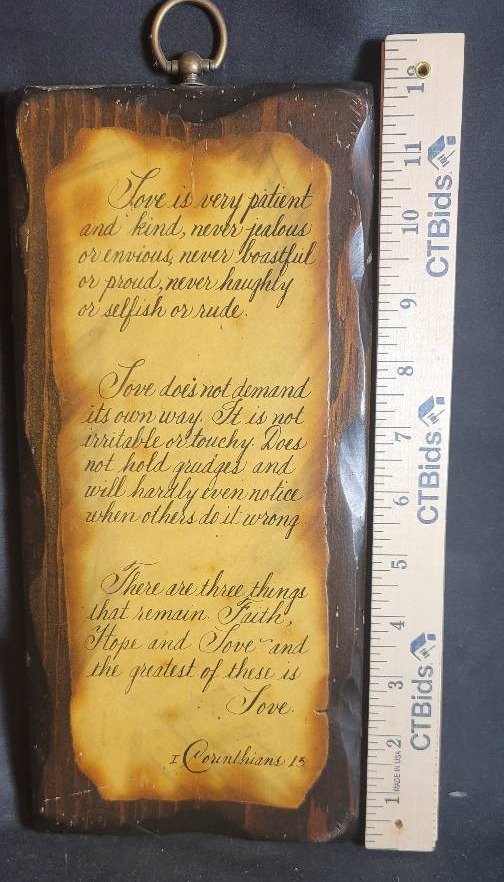 Love is very patient
and kind, never jealous
or envious, never boastful
or proud, never haughty
or selfish or rude.
Love does not demand
its own way. It is not
irritable or touchy. Does
not hold grudges and
will hardly even notice
when others do it wrong.
There are three things
that remain. Faith,
Hope and Love ~ and
the greatest of these is
Love.
I Corinthians 13
12
11
10
9
8
7
6
5
4
3
2
1
CTBids
CTBids
CTBids
MADE IN USA